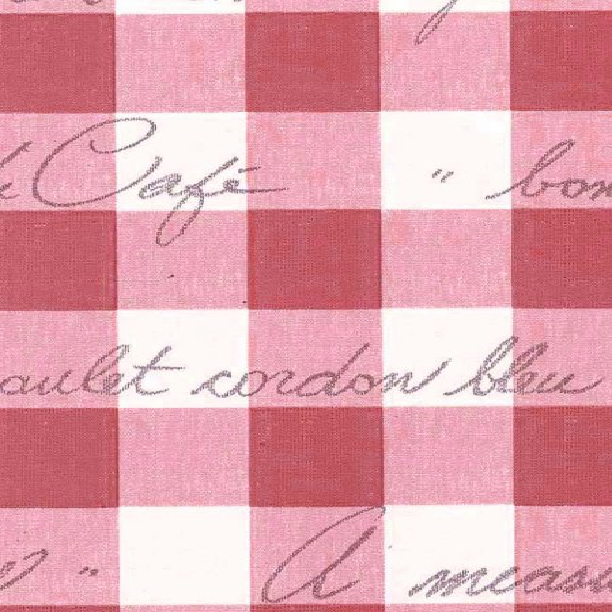 Café " bon
aulet cordon bleu
" A meas